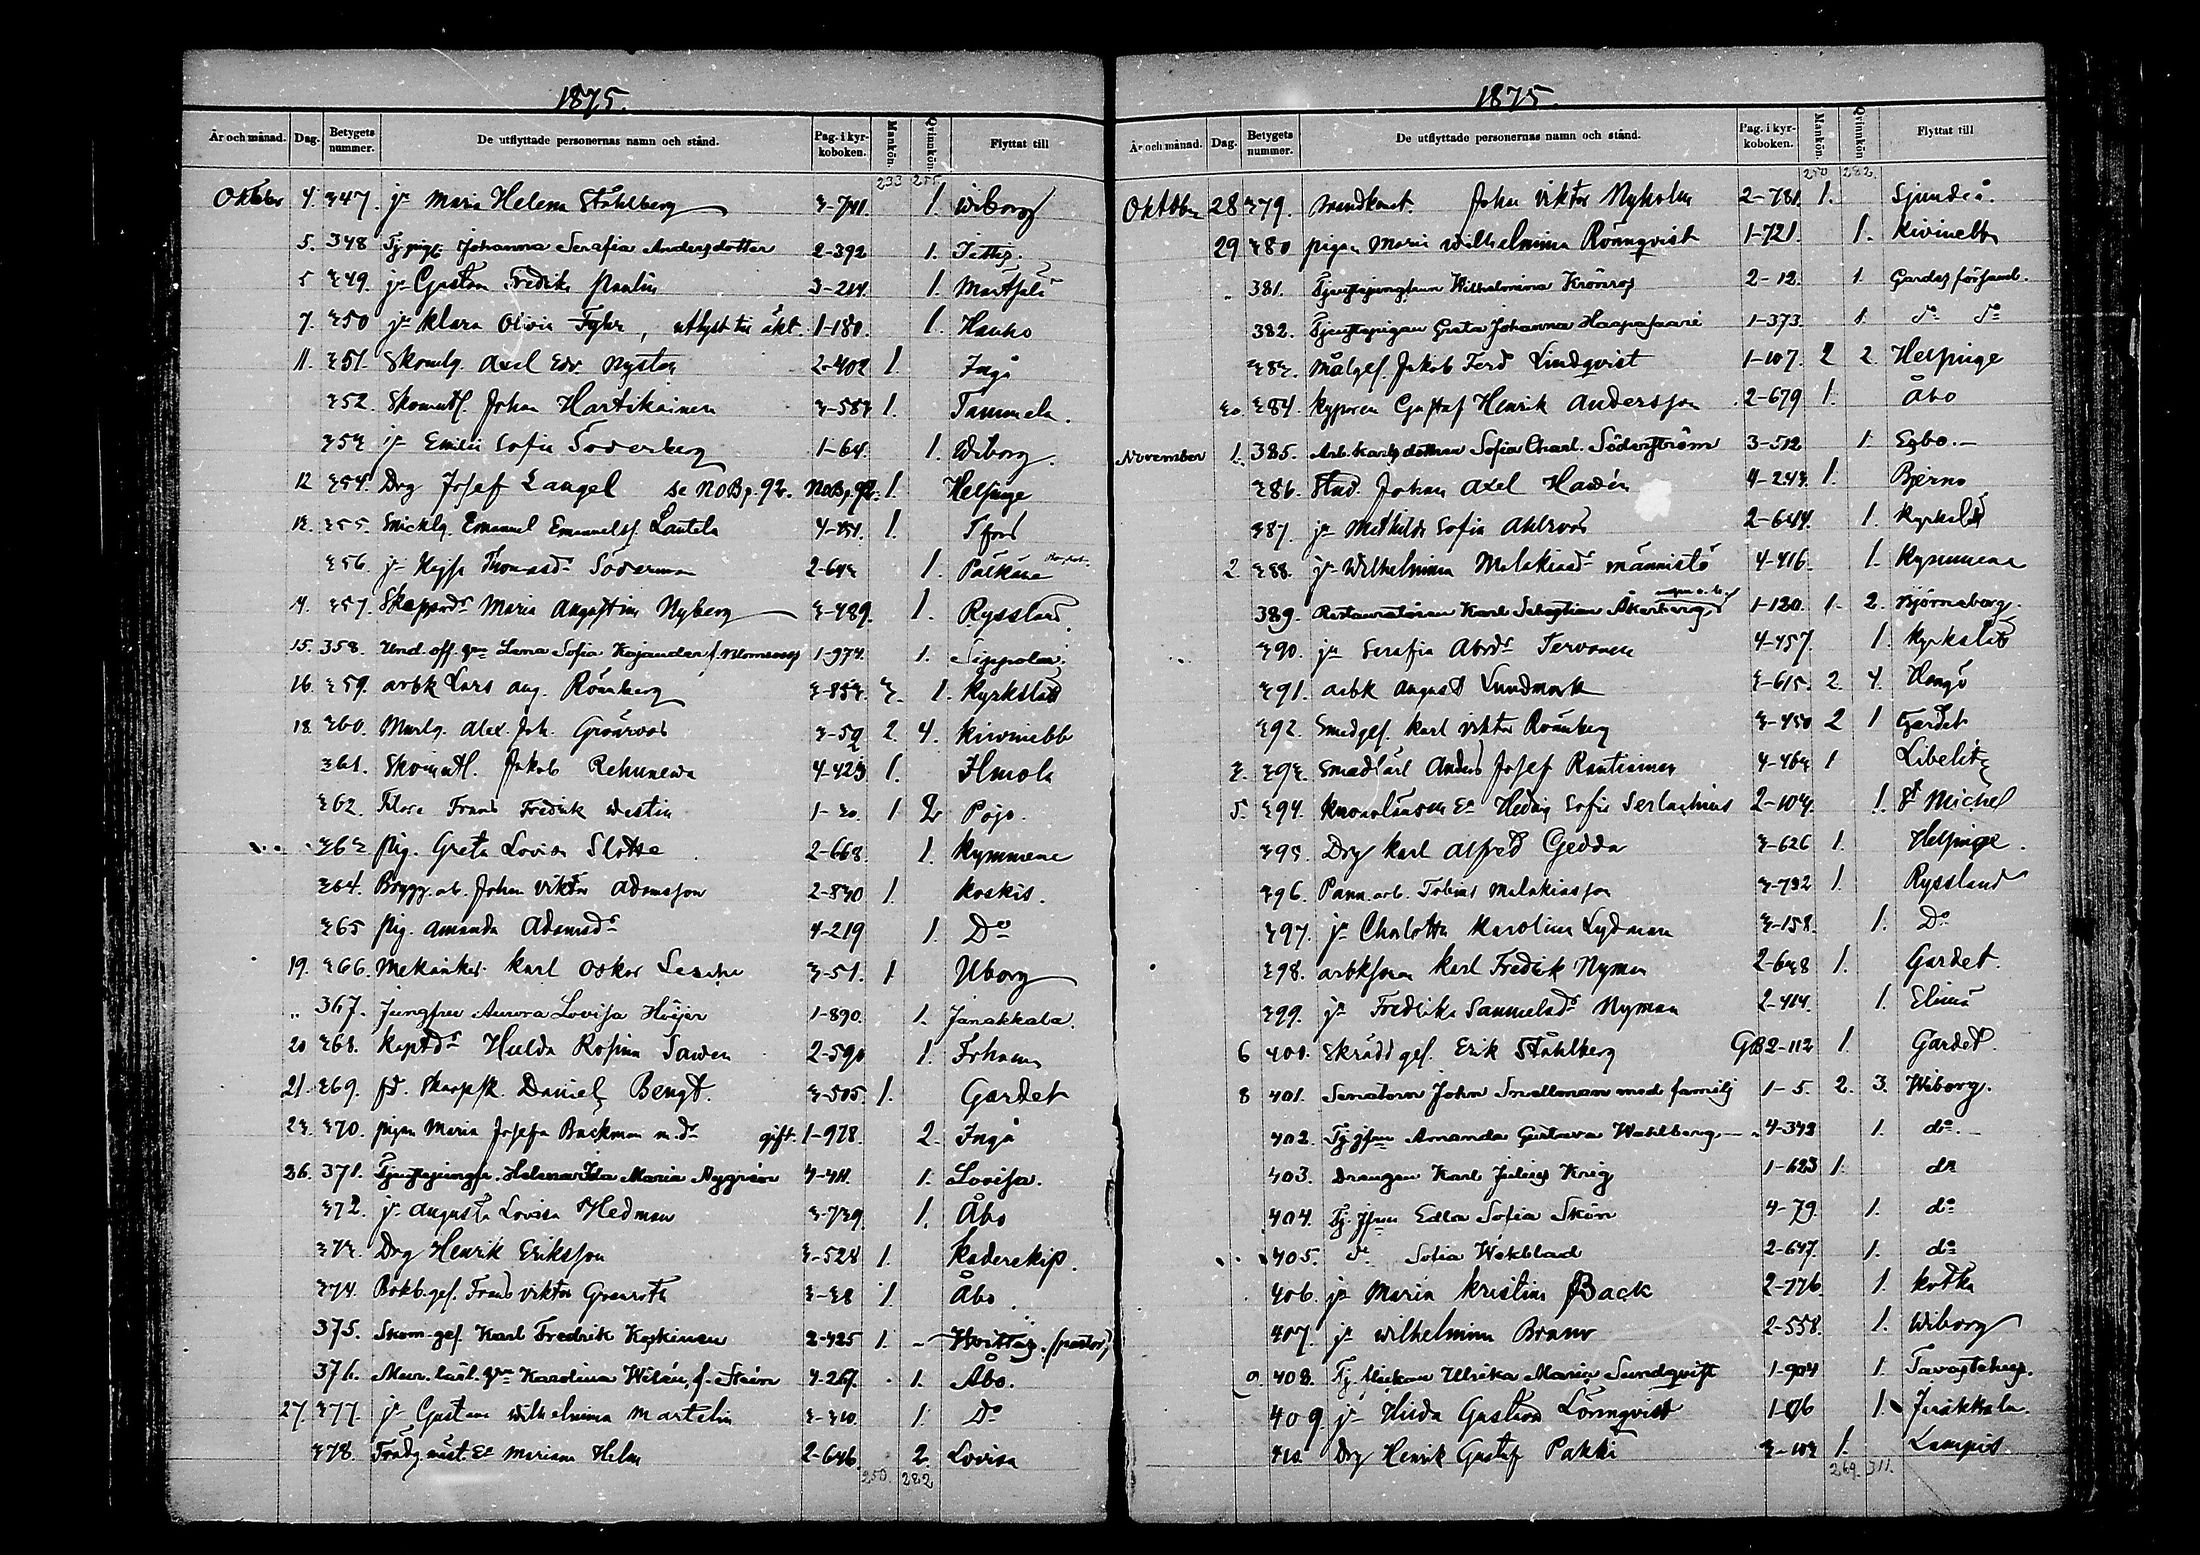 1875.
År och månad. Dag. Betygets nummer. De utflyttade personernas namn och stånd. Pag. i kyrkoboken. Mankön. Qvinnkön. Flyttat till
233 255
Oktober 4. 347. jn Maria Helena Ståhlberg 3-741. 1. Wiborg
5. 348 Tj.pig. Johanna Serafia Andersdotter 2-392 1.
5 349. jn Gustava Fredrika Paulin 3-214. 1.
7. 350 jn Klara Olivia Fyhr, utlyst till äkt. 1-180. 1. Hauho
11. 351. Skomlg. Axel Edv. Nyström 2-402 1. Ingå
352. Skomutl. Johan Hartikainen 3-583 1. Tammela.
353 jn Emilie Sofia Söderberg 1-64. 1. Wiborg.
12 354. Drg Josef Langel se NoBp. 92. NoBp. 92. 1. Helsinge
13. 355. Snicklg. Emanuel Emanuelss. Lautela 4-451. 1.
356. jn Thomasdr Söderman 2-643 1. Pälkäne
14. 357. Skeppsdr Maria Augustina Nyberg 3-489. 1. Ryssland
15. 358. Und. off. Lena Sofia Kajander f. 1-974. 1. Sippola.
16. 359. arbk Lars Aug. Rönnberg 3-853. 3. 1. Kyrkslätt
18. 360. Murlg. Alex. Joh. Grönroos 3-59 2. 4. Kivinebb
361. Skomutl. Jakob Rehunen 4-423 1. Ilmola
362. Frans Fredrik Westin 1-30. 1 2 Pojo.
363 Pig. Greta Lovisa Slotte 2-668. 1. Kymmene
364. Brygg. arb. Johan Viktor Adamsson 2-830 1. Koskis.
365 Pig. Amanda Adamsdr 4-219 1. Do
19. 366. Mekaniker Karl Oskar 3-51. 1 Wborg
„ 367. Jungfru Aurora Lovisa Höijer 1-890. 1. Janakkala.
20 368. Kaptdr Hulda Rosina Sawen 2-590 1.
21. 369. fd. skarpsk. Daniel Bengt. 3-505. 1. Gardet
23. 370. pigan Maria Josefa Backman m. dr gift. 1-978. 2. Ingå
26. 371. Tjenstejungfr. Helena Ida Maria Nygrén 4-411. 1. Lovisa.
372. jn Augusta Lovisa Hedman 3-739. 1. Åbo
373. Drg Henrik Eriksson 3-528 1.
374. Bokb.ges. Frans Viktor Granroth 3-38 1. Åbo.
375. Skom.ges. Karl Fredrik Koskinen 2-425 1. (pastor)
376. Mur. lärl. Karolina Wilén, f. 4-267. 1. Åbo.
27. 377. jn Gustava Wilhelmina Martelin 3-310. 1. Do
378. Trädg. mäst. Ea Mariana Helm 2-646 2. Lovisa
250. 282
1875.
År och månad. Dag. Betygets nummer. De utflyttade personernas namn och stånd. Pag. i kyrkoboken. Mankön. Qvinnkön. Flyttat till
250 282.
Oktober 28 379. Brandkonst. Johan Viktor Nyholm 2-781. 1. Sjundeå.
29 380 pigan Maria Wilhelmina Rönnqvist 1-721. 1. Kivinebb
„ 381. Tjenstejungfrun Wilhelmina Krönros 2-12. 1. Gardes församl.
382. Tjenstepigan Greta Johanna Haapasaari 1-373. 1. do do
383. Målges. Jakob Ferd Lindqvist 1-107. 2 2 Helsinge
30. 384. Kyparen Gustaf Henrik Andersson 2-679 1. Åbo
November 1. 385. Arb. karls dottren Sofia Charl. Söderström 3-512 1. Esbo.
386. Stud. Johan Axel Hawén 4-243. 1. Bjerno
387. jn Mathilda Sofia Ahlroos 2-644. 1. Kyrkslätt
2. 388. jn Wilhelmina Malakiasdr Männistö 4-416. 1. Kymmene
389. Restauratören Karl Sebastian Åkerberg 1-120. 1. 2. Björneborg.
390. jn Serafia Abrdr Tervonen 4-457. 1. Kyrkslätt
391. arbk August Lundmark 3-615. 2. 4. Hangö
392. Smedges. Karl Viktor Rönnberg 3-450 2 1 Gardet
3. 393. Smedlärl Anders Josef Rautiainen 4-464 1 Libelitz
5. 394. Ea Hedvig Sofia Serlachius 2-104. 1. St Michel
395. Drg Karl Alfred Gedda 3-626 1. Helsinge.
396. Pann. arb. Tobias Malakiasson 3-792 1. Ryssland
397. jn Charlotta Karolina Lydman 3-158. 1. Do
398. arbksson Karl Fredrik Nyman 2-648 1. Gardet.
399. jn Fredrika Samuelsdr Nyman 2-414. 1. Elimä
6 400. Skrädd ges. Erik Ståhlberg GB 2-112 1. Gardet.
8 401. Senatorn John Snellman med familj 1-5. 2. 3. Wiborg.
402. Tj.jfrun Amanda Gustava Wahlberg 4-342 1. do.
403. Drängen Karl Julius Krig 1-623 1. do
404. Tj. jfrun Edla Sofia Skön 4-79. 1. do
405. do Sofia Wekblad 2-647. 1. do
406. jn Maria Kristina Back 2-776. 1. Kotka
407. jn Wilhelmina Brunn 2-558. 1. Wiborg
9. 408. Tj. flickan Ulrika Maria Sundqvist 1-904 1. Tavastehus.
409. jn Hilda Gustava Lönnqvist 1-076 1. Janakkala.
410. Drg Henrik Gustaf Pakki 3-103 1. Lampis.
269. 311.